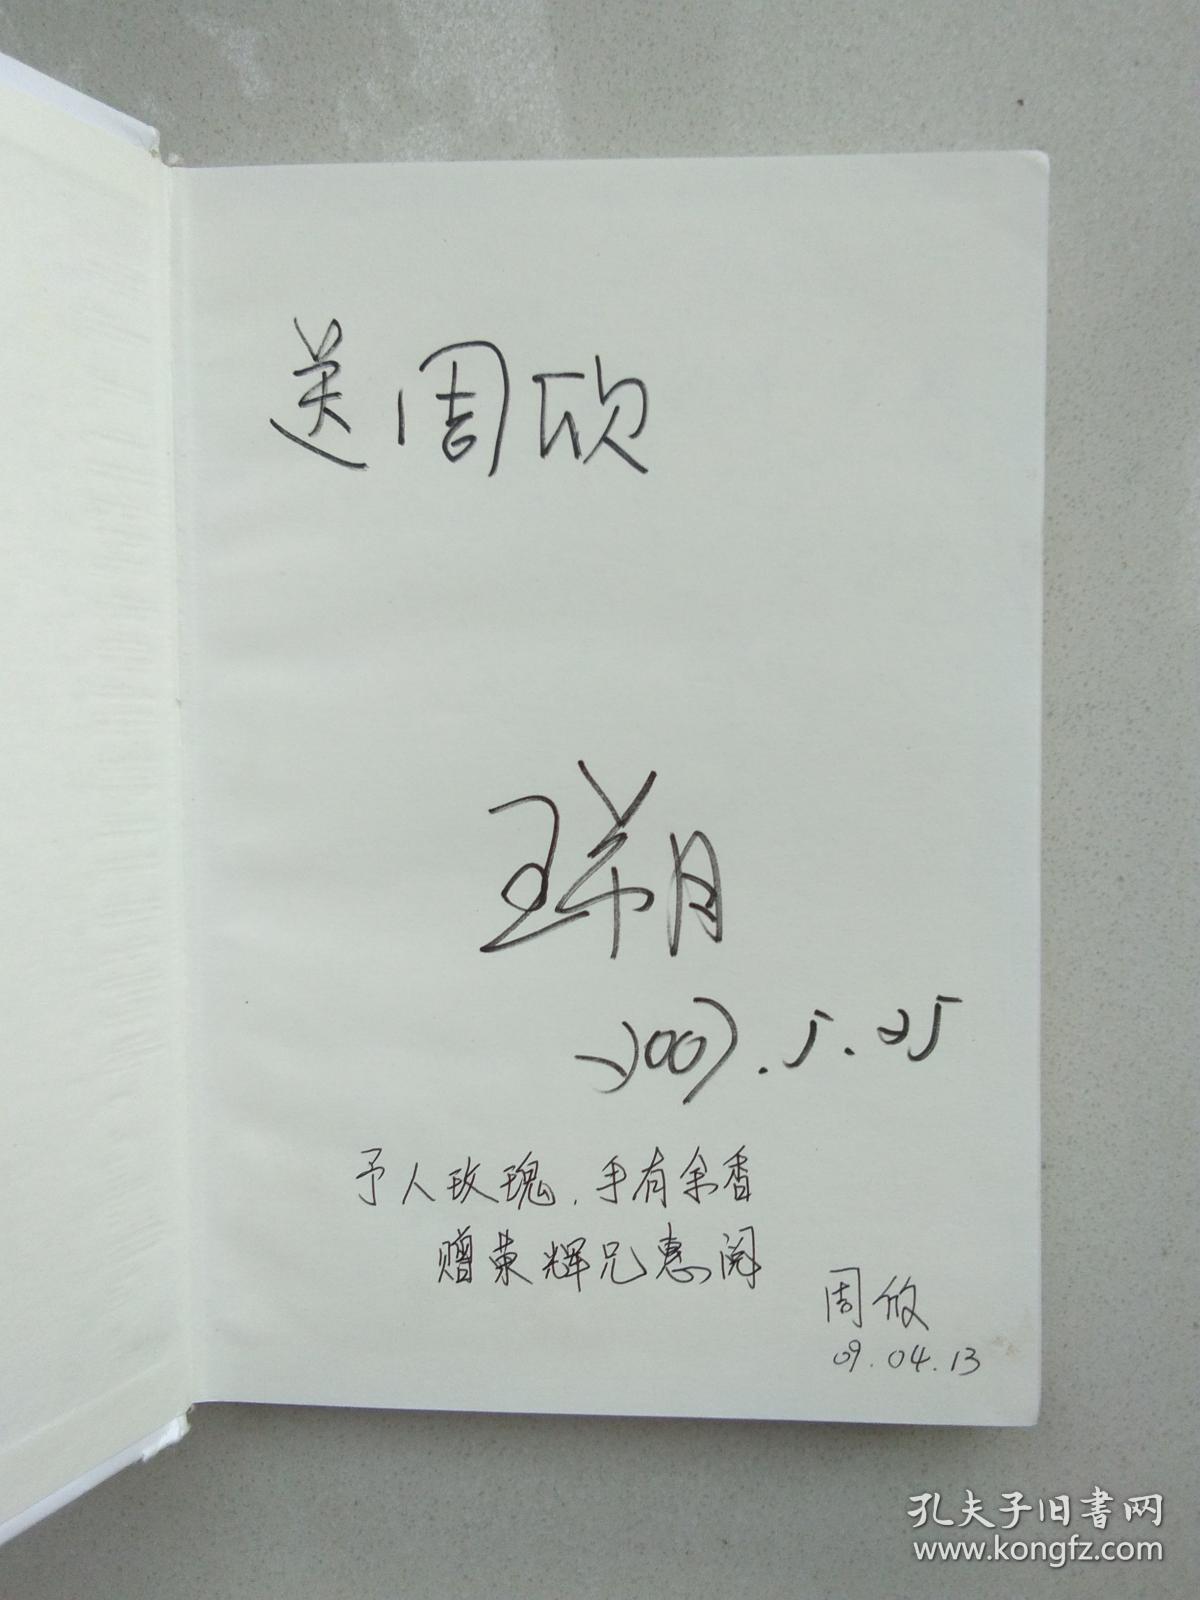 送周欣
王朔
2007.5.25
予人玫瑰,手有余香
赠东辉兄惠阅
周欣
09.04.13
孔夫子旧书网
www.kongfz.com